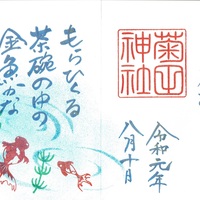 菊田
神社
令和元年
八月十日
もらひくる
茶碗の中の
金魚かな